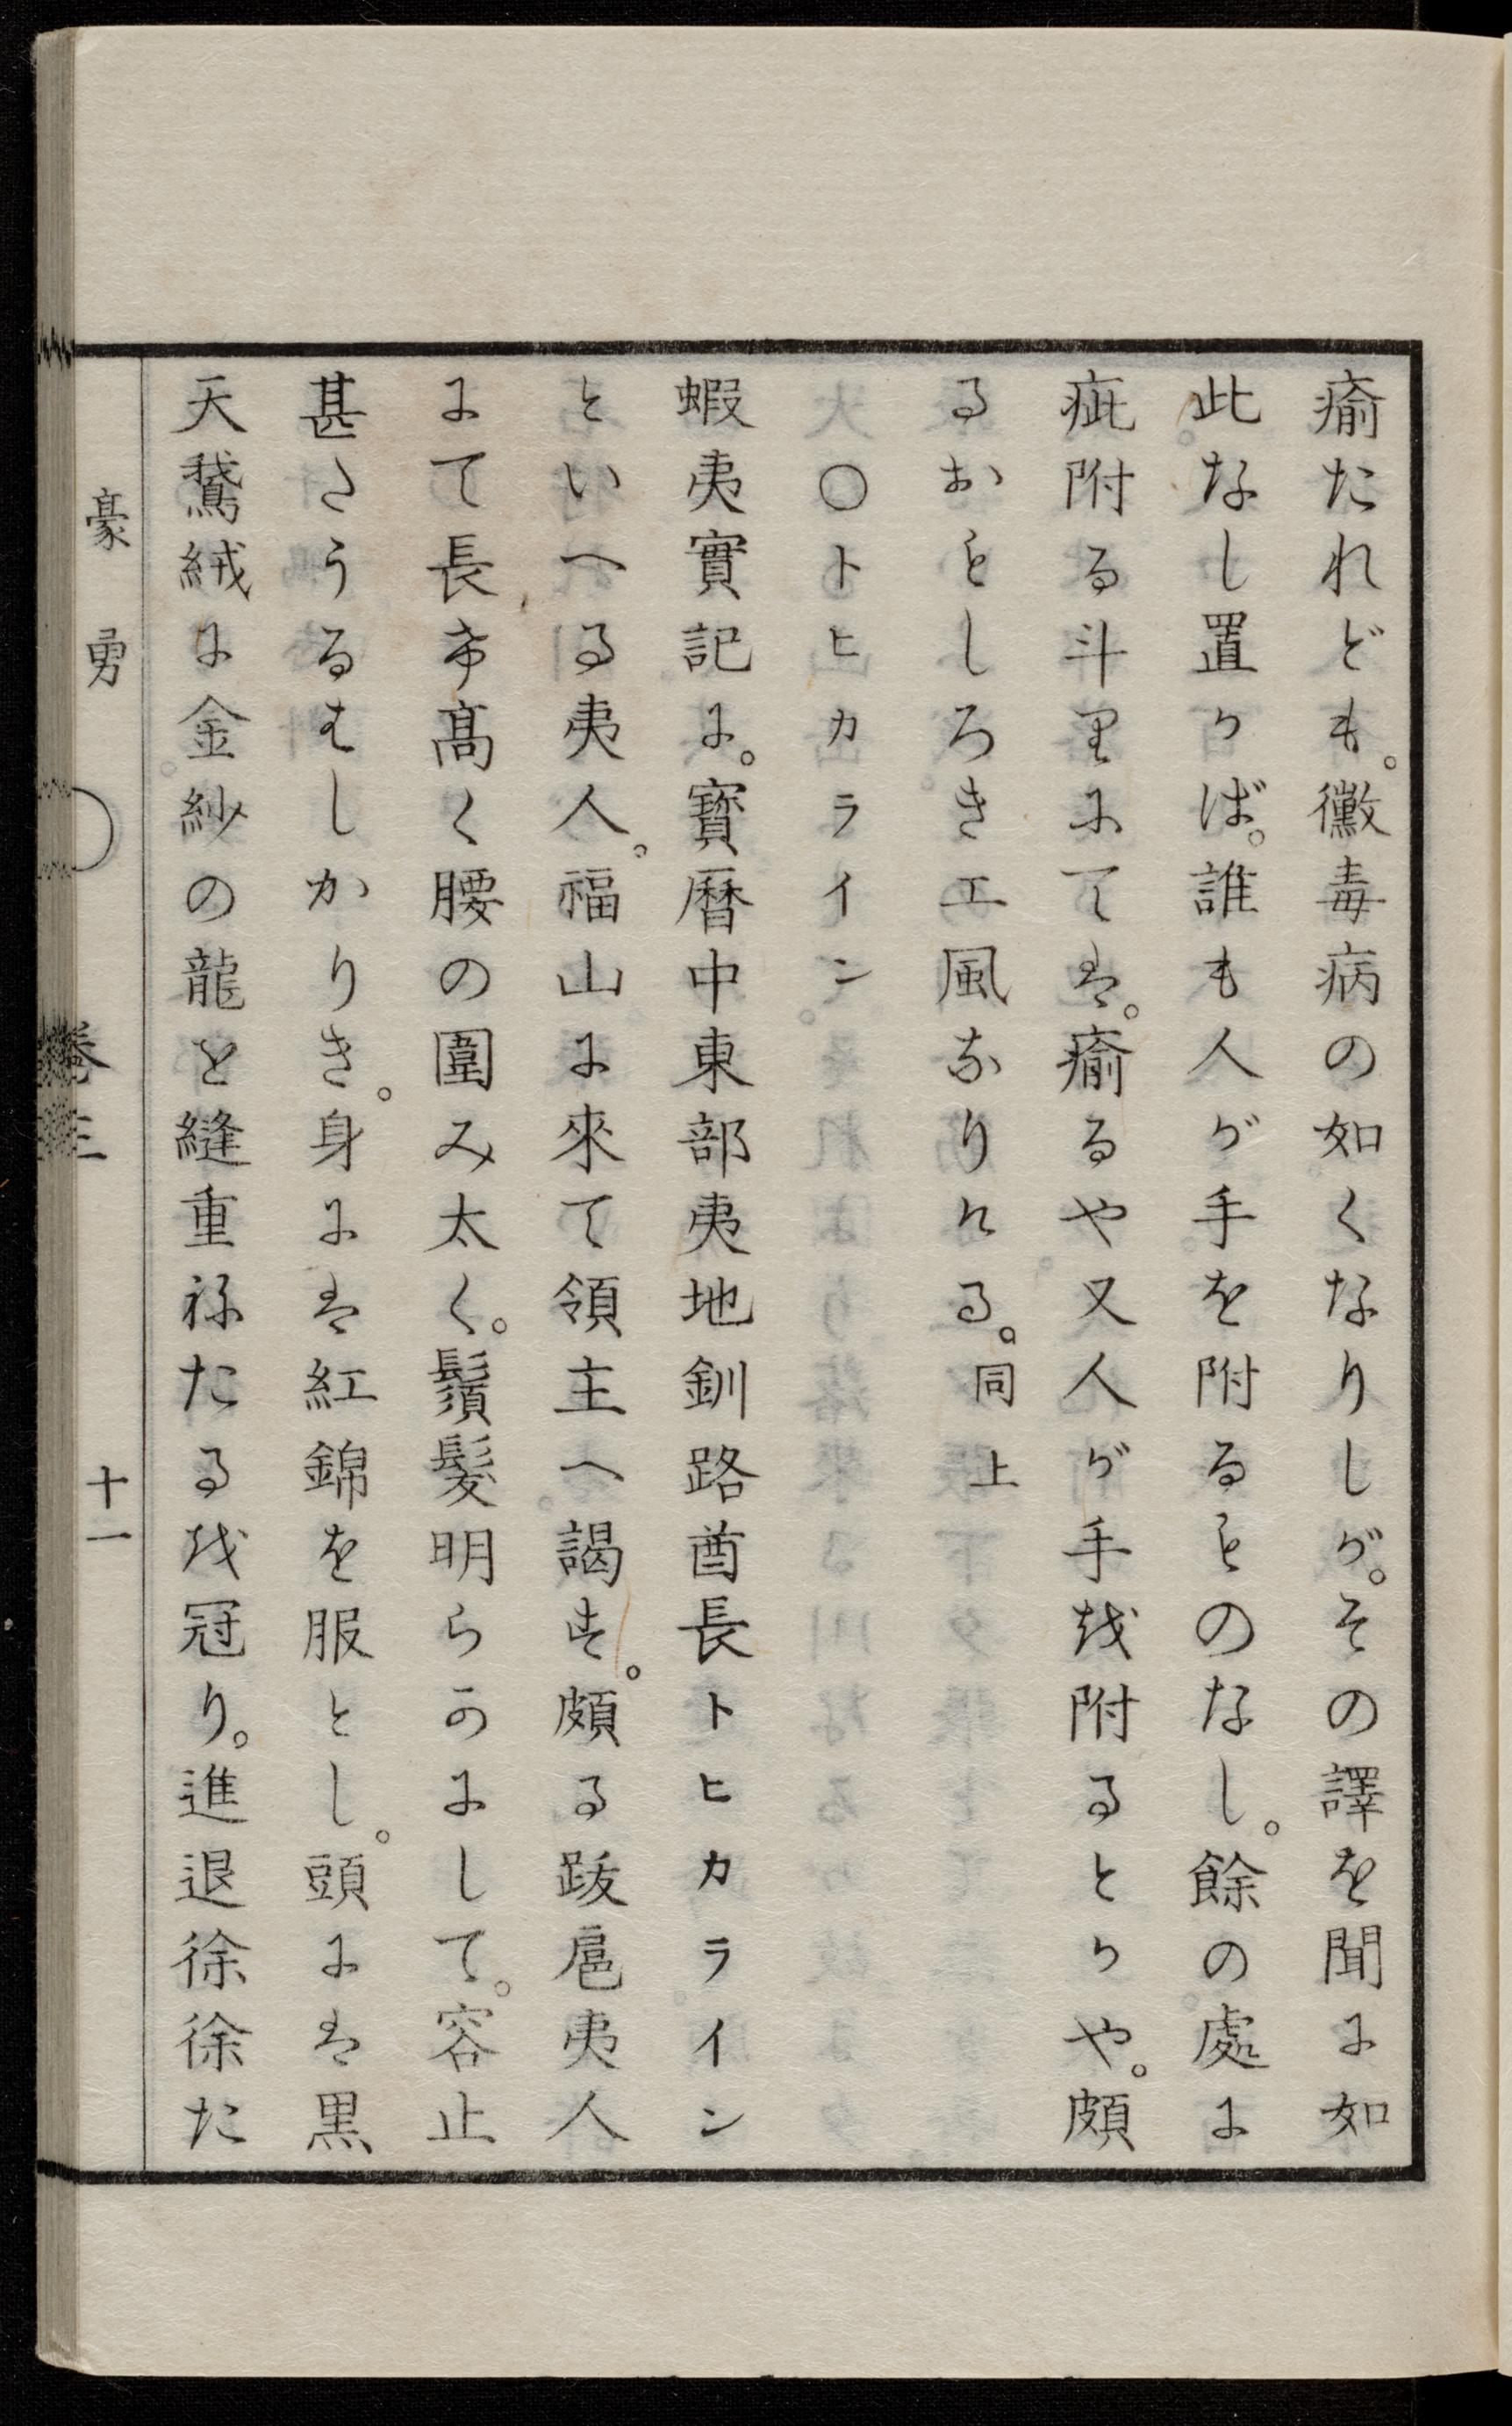 瘉たれども。黴毒病の如くなりしが。その譯を聞に如
此なし置ゟば。誰も人が手を附るものなし。餘の處に
疵附る斗りにては。瘉るや又人が手を附るとかや。頗
るおもしろき工風なりける。同上
〇トヒカライン
蝦夷實記に。寳暦中東部夷地釧路酋長トヒカライン
といへる夷人。福山に來て領主へ謁す。頗る跋扈夷人
にて長ケ髙く腰の圍み太く。鬚髪明らかにして。容止
甚さうるはしかりき。身には紅錦を服とし。頭には黒
天鵞絨に金紗の龍を縫重ねたるを冠り。進退徐徐た
豪勇
卷三
十一